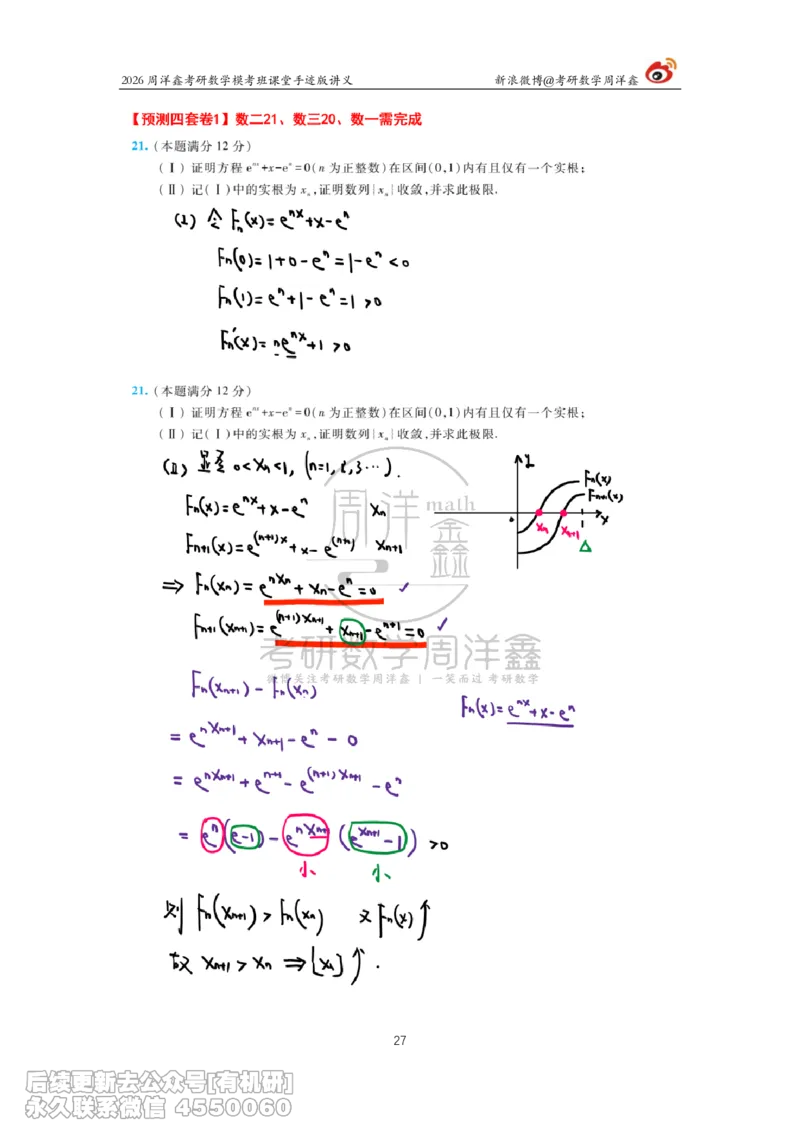 2026 周洋鑫考研数学模考班课堂手迹版讲义 新浪微博@考研数学周洋鑫
【预测四套卷1】数二21、数三20、数一需完成
21. (本题满分 12 分)
(Ⅰ) 证明方程 e^{nx}+x-e^n=0(n 为正整数)在区间(0,1)内有且仅有一个实根;
(Ⅱ) 记(Ⅰ)中的实根为 x_n,证明数列{x_n}收敛,并求此极限.
(1) 令 F_n(x)=e^{nx}+x-e^n
F_n(0)=1+0-e^n=1-e^n<0
F_n(1)=e^n+1-e^n=1>0
F_n'(x)=ne^{nx}+1>0
21. (本题满分 12 分)
(Ⅰ) 证明方程 e^{nx}+x-e^n=0(n 为正整数)在区间(0,1)内有且仅有一个实根;
(Ⅱ) 记(Ⅰ)中的实根为 x_n,证明数列{x_n}收敛,并求此极限.
(Ⅱ) 显然 0<x_n<1, (n=1,2,3…).
y F_n(x) F_{n+1}(x) 0 x_n x_{n+1} 1 x △
F_n(x)=e^{nx}+x-e^n x_n
F_{n+1}(x)=e^{(n+1)x}+x-e^{(n+1)} x_{n+1}
⇒ F_n(x_n)=e^{nx_n}+x_n-e^n=0 ✓
F_{n+1}(x_{n+1})=e^{(n+1)x_{n+1}}+x_{n+1}-e^{n+1}=0 ✓
周洋 math 鑫
考研数学周洋鑫
微博关注考研数学周洋鑫 | 一笑而过 考研数学
F_n(x_{n+1})-F_n(x_n) F_n(x)=e^{nx}+x-e^n
=e^{nx_{n+1}}+x_{n+1}-e^n-0
=e^{nx_{n+1}}+e^{n+1}-e^{(n+1)x_{n+1}}-e^n
=e^n(e-1)-e^{nx_{n+1}}(e^{x_{n+1}}-1)>0
小 小
则 F_n(x_{n+1})>F_n(x_n) 又 F_n(x)↑
故 x_{n+1}>x_n ⇒{x_n}↑.
27
后续更新去公众号[有机研]
永久联系微信 4550060